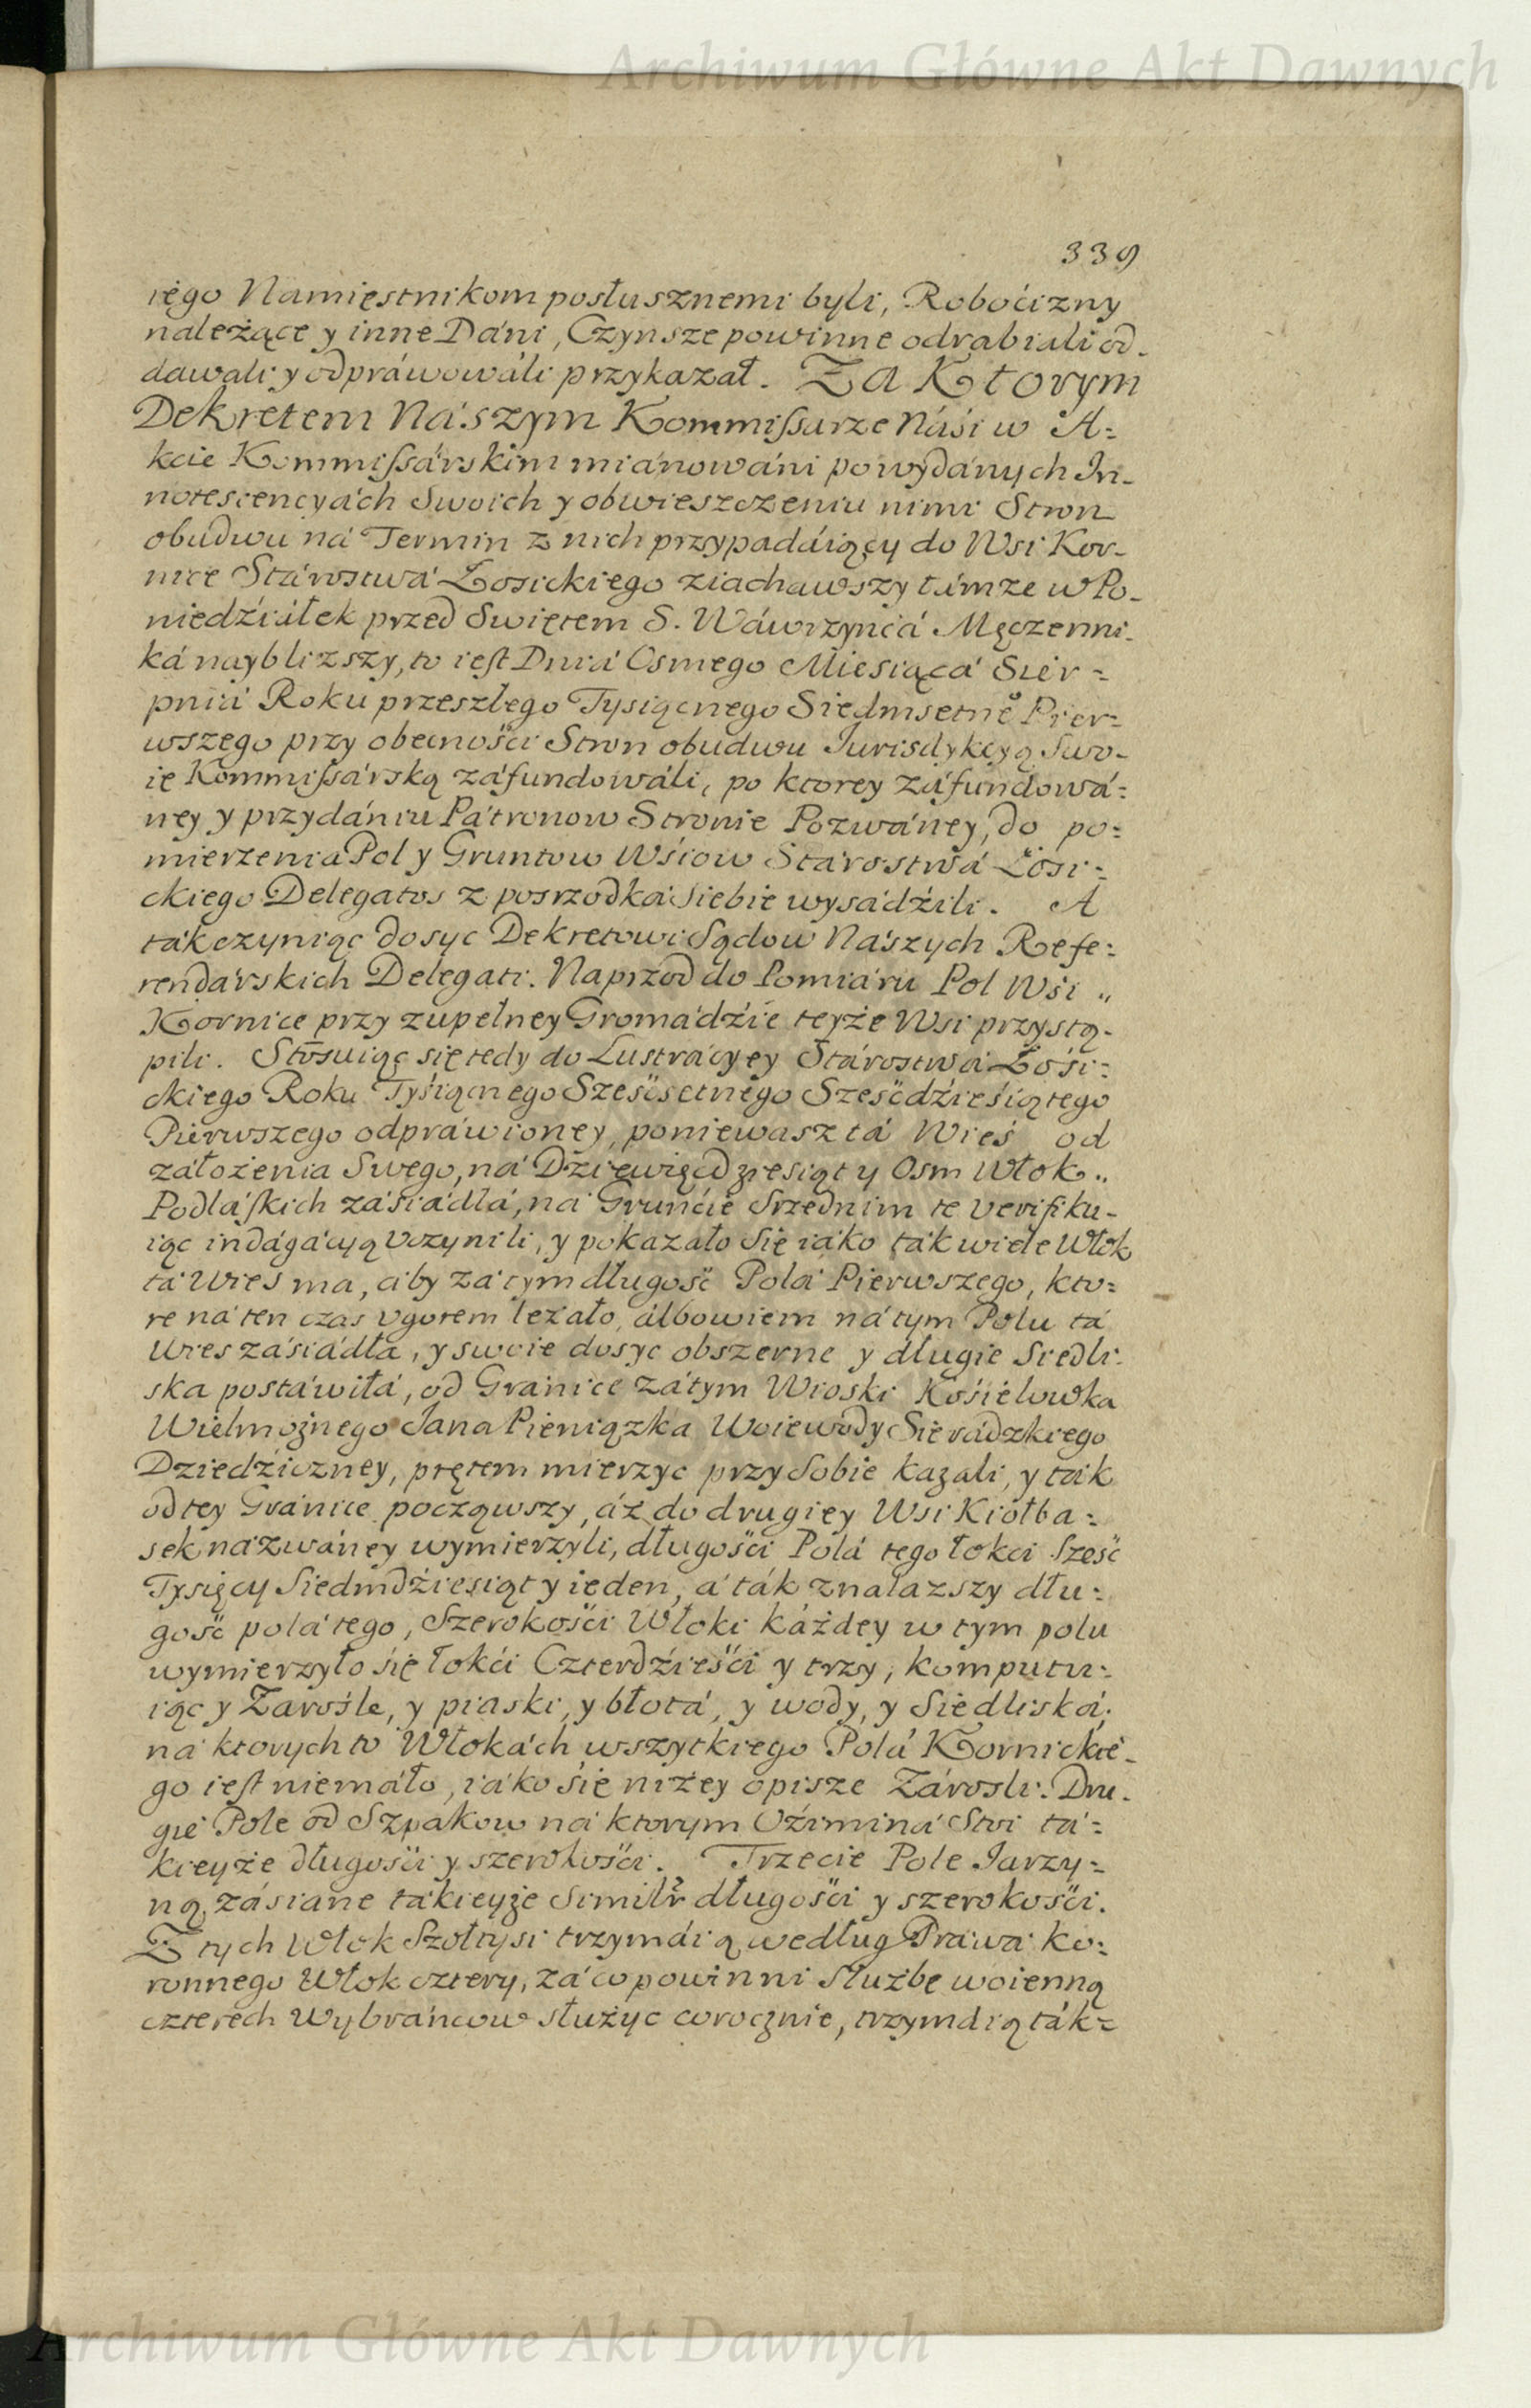 Archiwum Główne Akt Dawnych
339
rego Namięstnikom posłusznemi byli, Roboćizny
należące y inne Dáni, Czynsze powinne odrabiali od-
dawali y odpráwowáli przykazał. Za Ktorym
Dekretem Nászym Kommißarze Náśi w A=
kcie Kommißárskim miánowáni po wydánych In-
notescencyách Swoich y obwieszczeniu nimi Stron
obudwu ná Termin z nich przypadáiący do Wsi Kor-
nice Stárostwá Łosickiego ziachawszy támze w Po-
niedźiáłek przed Swiętem S. Wáwrzyńcá Męczenni-
ká nayblizszy, to iest Dniá Osmego Miesiącá Sier=
pniá Roku przeszłego Tysiącnego Siedmsetnego Pier=
wszego przy obecnośći Stron obudwu Iurisdykcyą Swo-
ię Kommißárską záfundowáli, po ktorey záfundowá=
ney y przydániu Pátronow Stronie Pozwáney, do po=
mierzenia Pol y Gruntow Wśiow Starostwá Łośi=
ckiego Delegatos z posrzodká Siebie wysádźili. A
ták czyniąc dosyc Dekretowi Sądow Nászych Refe=
rendárskich Delegati. Naprzod do Pomiáru Pol Wśi „
Kornice przy zupełney Gromádźie teyże Wsi przystą-
pili. Stosuiąc się tedy do Lustrácyey Stárostwá Łośi=
ckiego Roku Tyśiącnego Sześćsetnego Sześćdźieśiątego
Pierwszego odpráwioney, poniewasz tá Wieś od
záłożenia Swego, ná Dźiewięćdzieśiąt y Osm Włok „
Podláskich záśiádlá, ná Gruńćie Srzednim te verifiku-
iąc indágácyą vczynili, y pokazało się iáko ták wiele Włok
tá Wieś ma, áby zá tym długość Polá Pierwszego, kto=
re ná ten czas vgorem leżało, álbowiem ná tym Polu tá
Wies záśiádła, y swoie dosyc obszerne y długie Siedli-
ska postáwiłá, od Gránice zátym Wioski Kośielowka
Wielmożnego Jana Pieniązka Woiewody Sierádzkiego
Dziedźiczney, prętem mierzyc przy Sobie kazali, y ták
od tey Gránice począwszy, áż do drugiey Wsi Kiołba=
sek názwáney wymierzyli, długośći Polá tego łokci Sześć
Tysięcy Siedmdźiesiąt y ieden, á ták znalazszy dłu=
gość polá tego, Szerokośći Włoki káżdey w tym polu
wymierzyło się łokći Czterdźieśći y trzy, komputu=
iąc y Zarośle, y piaski, y błotá, y wody, y Siedliská,
ná ktorych to Włokách wszytkiego Polá Kornickie-
go iest niemáło, iáko się niżey opisze Zárosli. Dru-
gie Pole od Szpakow ná ktorym Oźiminá Stoi tá=
kieyże długośći y szerokośći. Trzecie Pole Iarzy=
ną zásiane tákieyże Similr długośći y szerokośći.
Z tych Włok Szołtysi trzymáią według Práwá Ko=
ronnego Włok cztery, zá co powinni Służbę woienną
czterech Wybráńcow służyc corocznie, trzymáią ták=
Archiwum Główne Akt Dawnych